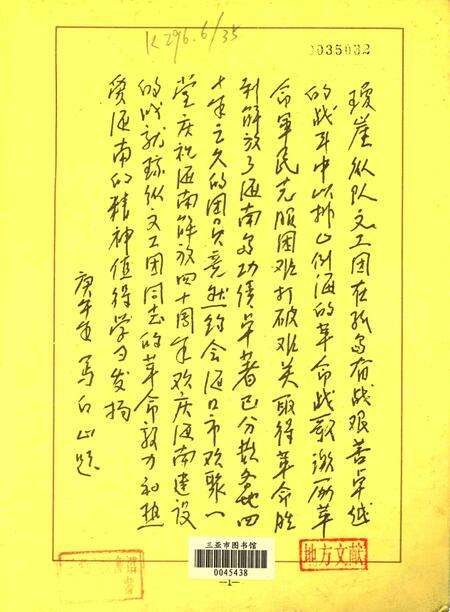 K296.6/35
0035032
琼崖纵队文工团在孤岛奋战艰苦卓越
的战斗中以排山倒海的革命战歌激励革
命军民克服困难打破难关取得革命胜
利解放了海南岛功绩卓著已分散各地四
十年之久的团员竟然约会海口市欢聚一
堂庆祝海南解放四十周年欢庆海南建设
的成就琼纵文工团同志的革命毅力和热
爱海南的精神值得学习发扬
庚午年 马白山题
三亚市图书馆
0045438
—1—
地方文献